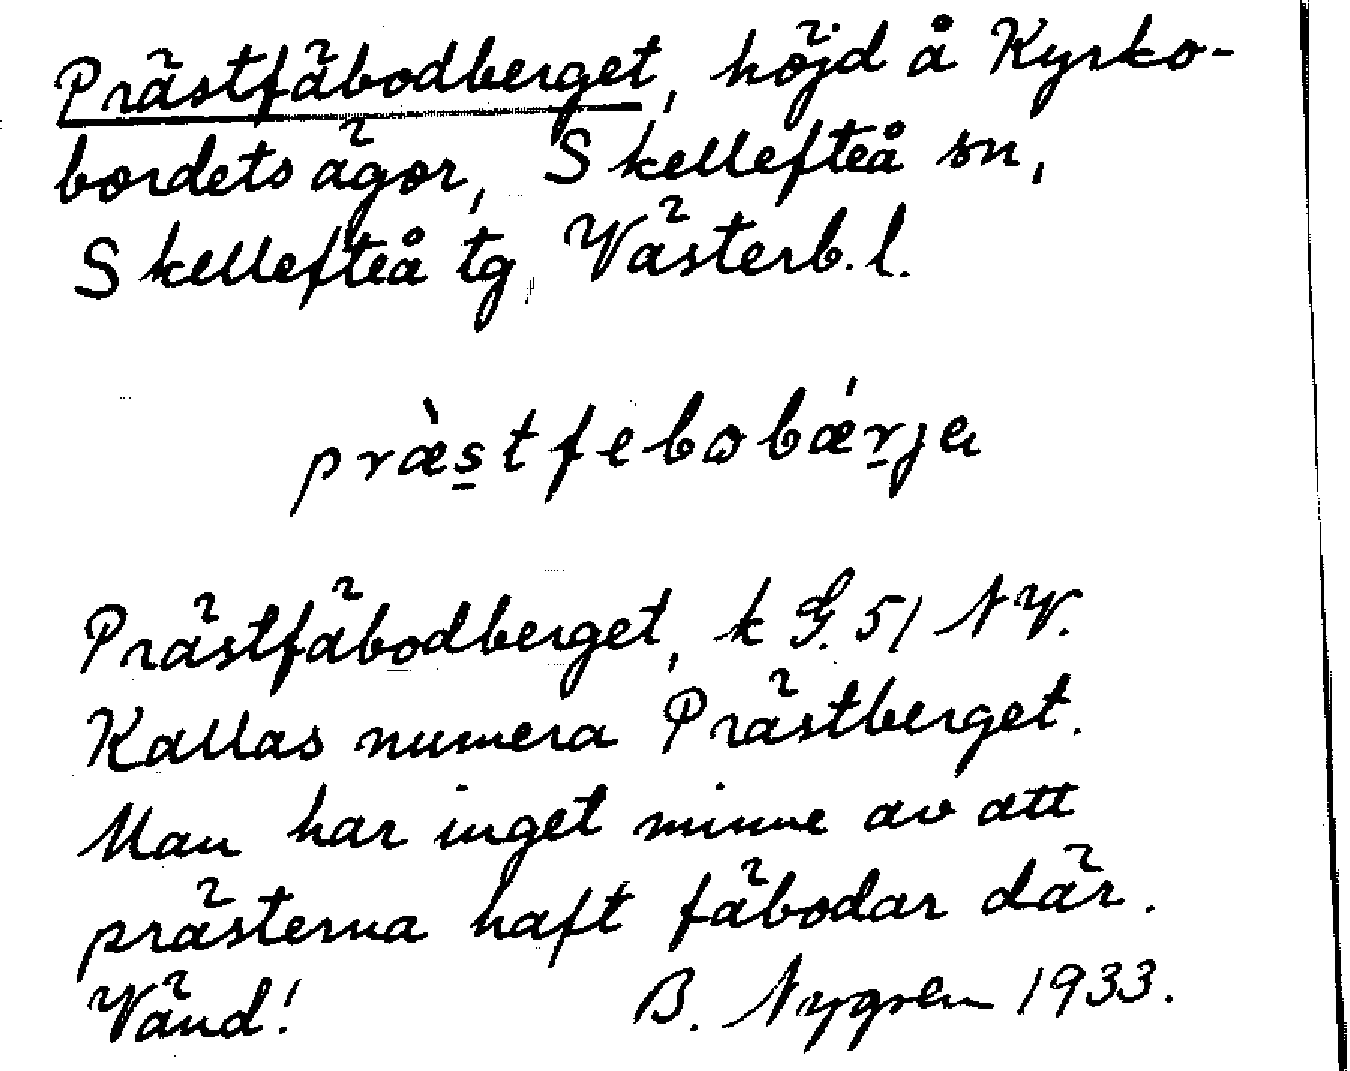 Prästfäbodberget, höjd å Kyrko-
bordets ägor, Skellefteå sn,
Skellefteå tg, Västerb. l.
præ̀s̠tfebobǽr̠ja
Prästfäbodberget, k G. 51 NV.
Kallas numera Prästberget.
Man har inget minne av att
prästerna haft fäbodar där.
Vänd! B. Nygren 1933.